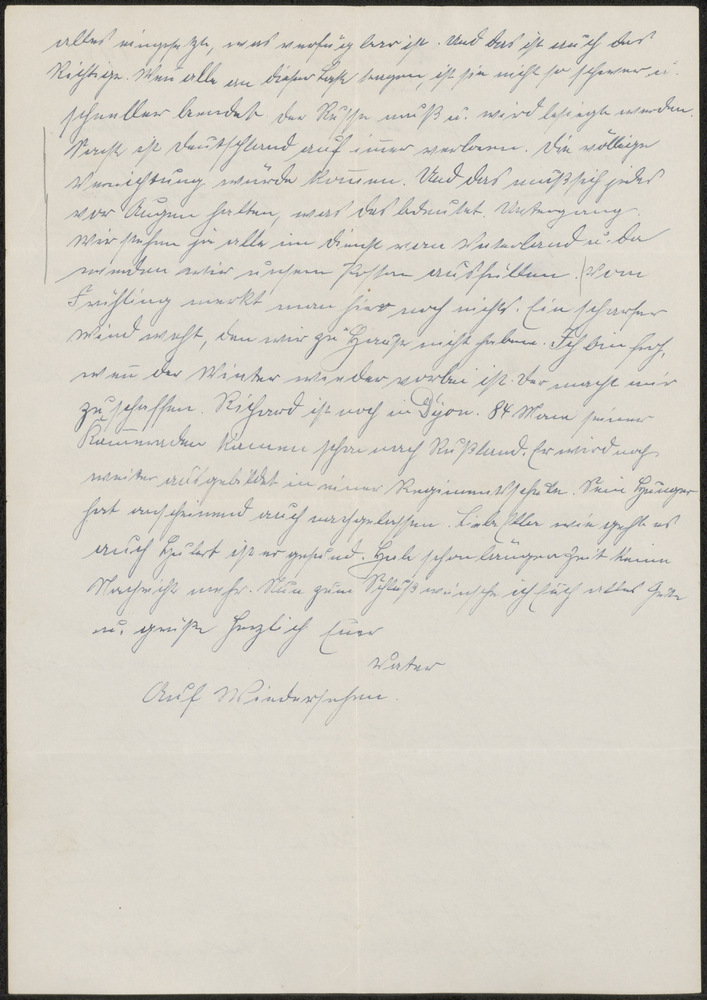 alles eingesetzt, was verfügbar ist. Und das ist auch das
Richtige. Wen alle an dieser Last tragen, ist sie nicht so schwer u.
schneller beendet der Russe muß u. wird besiegt werden.
ist Deutschland auf immer verloren. Die völlige
Vernichtung würde kommen. Und das muß sich jeder
vor Augen halten, was das bedeutet. Untergang.
Wir stehen ja alle im Dienst vom Vaterland u. da
werden wir unsern Posten ausfüllen. Vom
Frühling merkt man hier noch nichts. Ein scharfer
Wind weht, den wir zu Hause nicht haben. Ich bin froh,
wen der Winter wieder vorbei ist. Der macht mir
zu schaffen. Richard ist noch in Dijon. 84 Mann seiner
Kameraden kamen schon nach Rußland. Er wird noch
weiter ausgebildet in einer Regimentsschule. Sein Hunger
hat anscheinend auch nachgelassen. wie geht es
auch ist er gesund. Habe schon längere Zeit keine
Nachricht mehr. Nun zum Schluß wünsche ich Euch alles Gute
u. grüße herzlich Euer
Vater
Auf Wiedersehen.